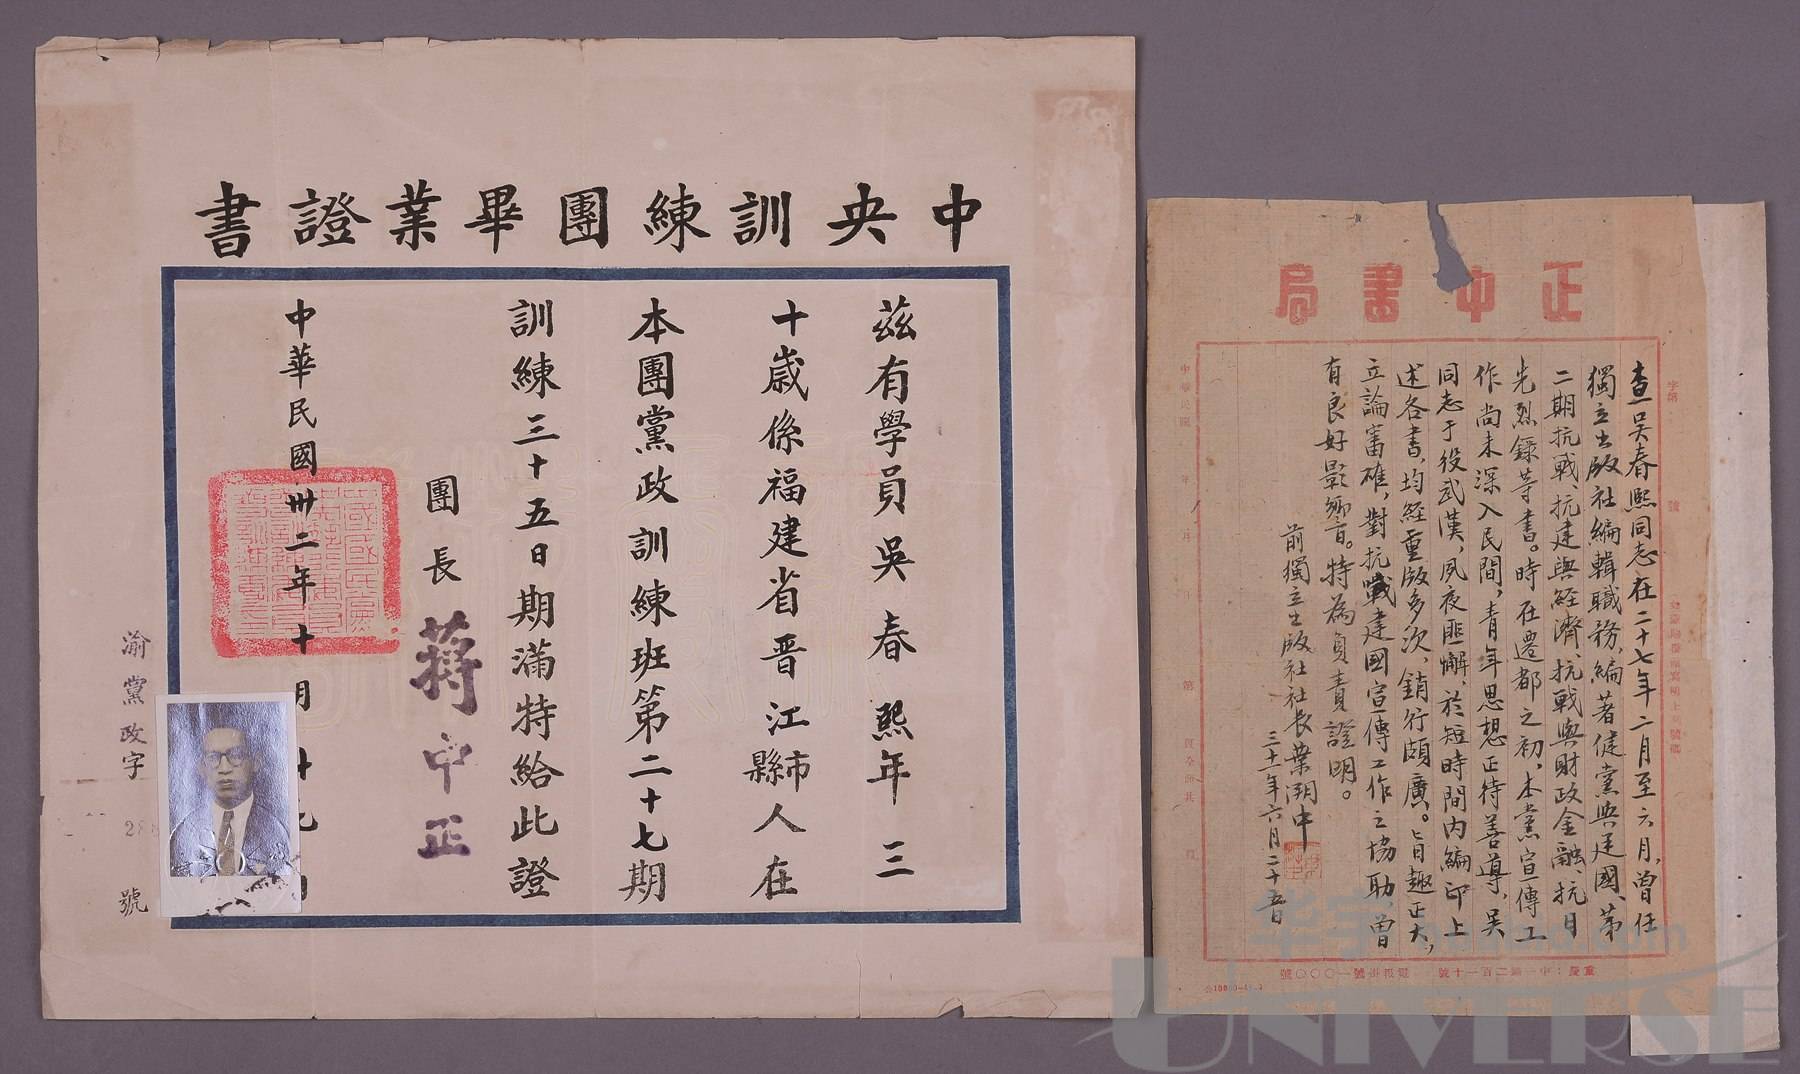 中央訓練團畢業證書
茲有學員吳春熙年三
十歲係福建省晉江市縣人在
本團黨政訓練班第二十七期
訓練三十五日期滿特給此證
團長蔣中正
中華民國卅二年十月廿九日
渝黨政字 號
正中書局
字第 號
查吳春熙同志在二十七年二月至六月,曾任
獨立出版社編輯職務,編著健黨與建國、第
二期抗戰、抗建與經濟、抗戰與財政金融、抗日
先烈錄等書。時在遷都之初,本黨宣傳工
作尚未深入民間,青年思想正待善導,吳
同志于役武漢,夙夜匪懈,於短時間內編印上
述各書,均經重版多次,銷行頗廣。旨趣正大,
立論審確,對抗戰建國宣傳工作之協助,曾
有良好影響。特為負責證明。
前獨立出版社社長葉溯中
三十一年六月二十五日
中華民國 年 月 日 第 頁全份共 頁
公10000-41.4
华宇
UNIVERSE